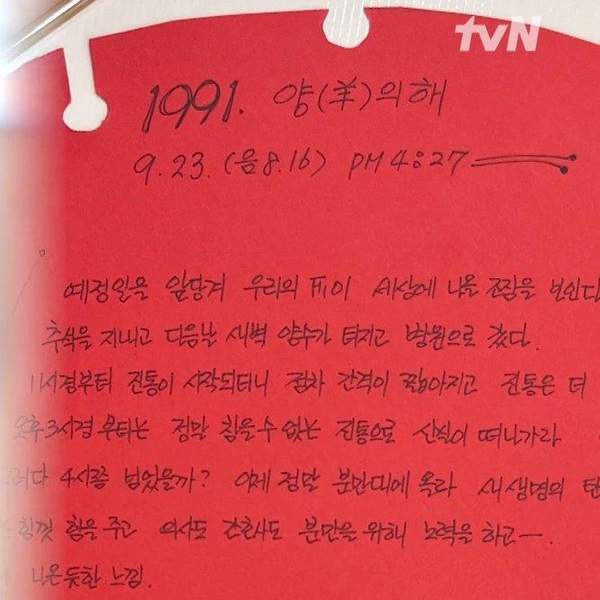 tvN
1991. 양(羊)의해
9.23.(음8.16) PM 4:27
예정일을 앞당겨 우리의 표이 세상에 나올 조짐을 보인다
추석을 지내고 다음날 새벽 양수가 터지고 병원으로 갔다.
1시경부터 진통이 시작되더니 점차 간격이 짧아지고 진통은 더
오후3시경 부터는 정말 참을수 없는 진통으로 신식이 떠나가라
4시쯤 넘었을까? 이제 정말 분만대에 올라 새생명의 탄
힘껏 힘을 주고 의사도 간호사도 분만을 위해 노력을 하고—.
나온듯한 느낌.